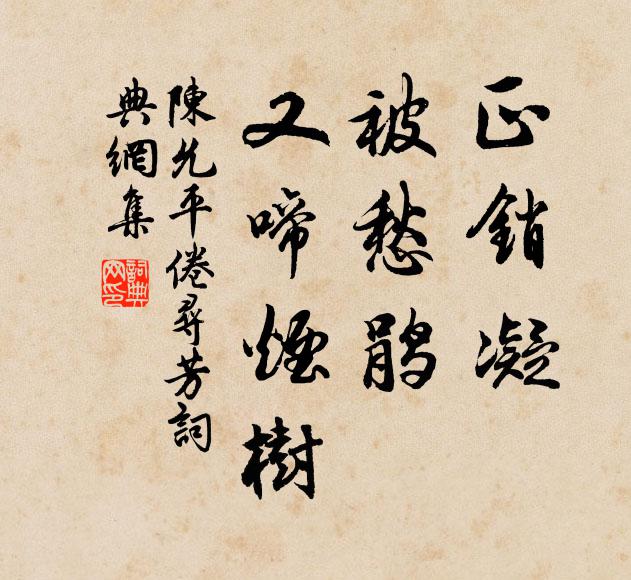 正銷凝
被愁鵑
又啼煙樹
陳允平倦尋芳詞
典網集
詞典網印